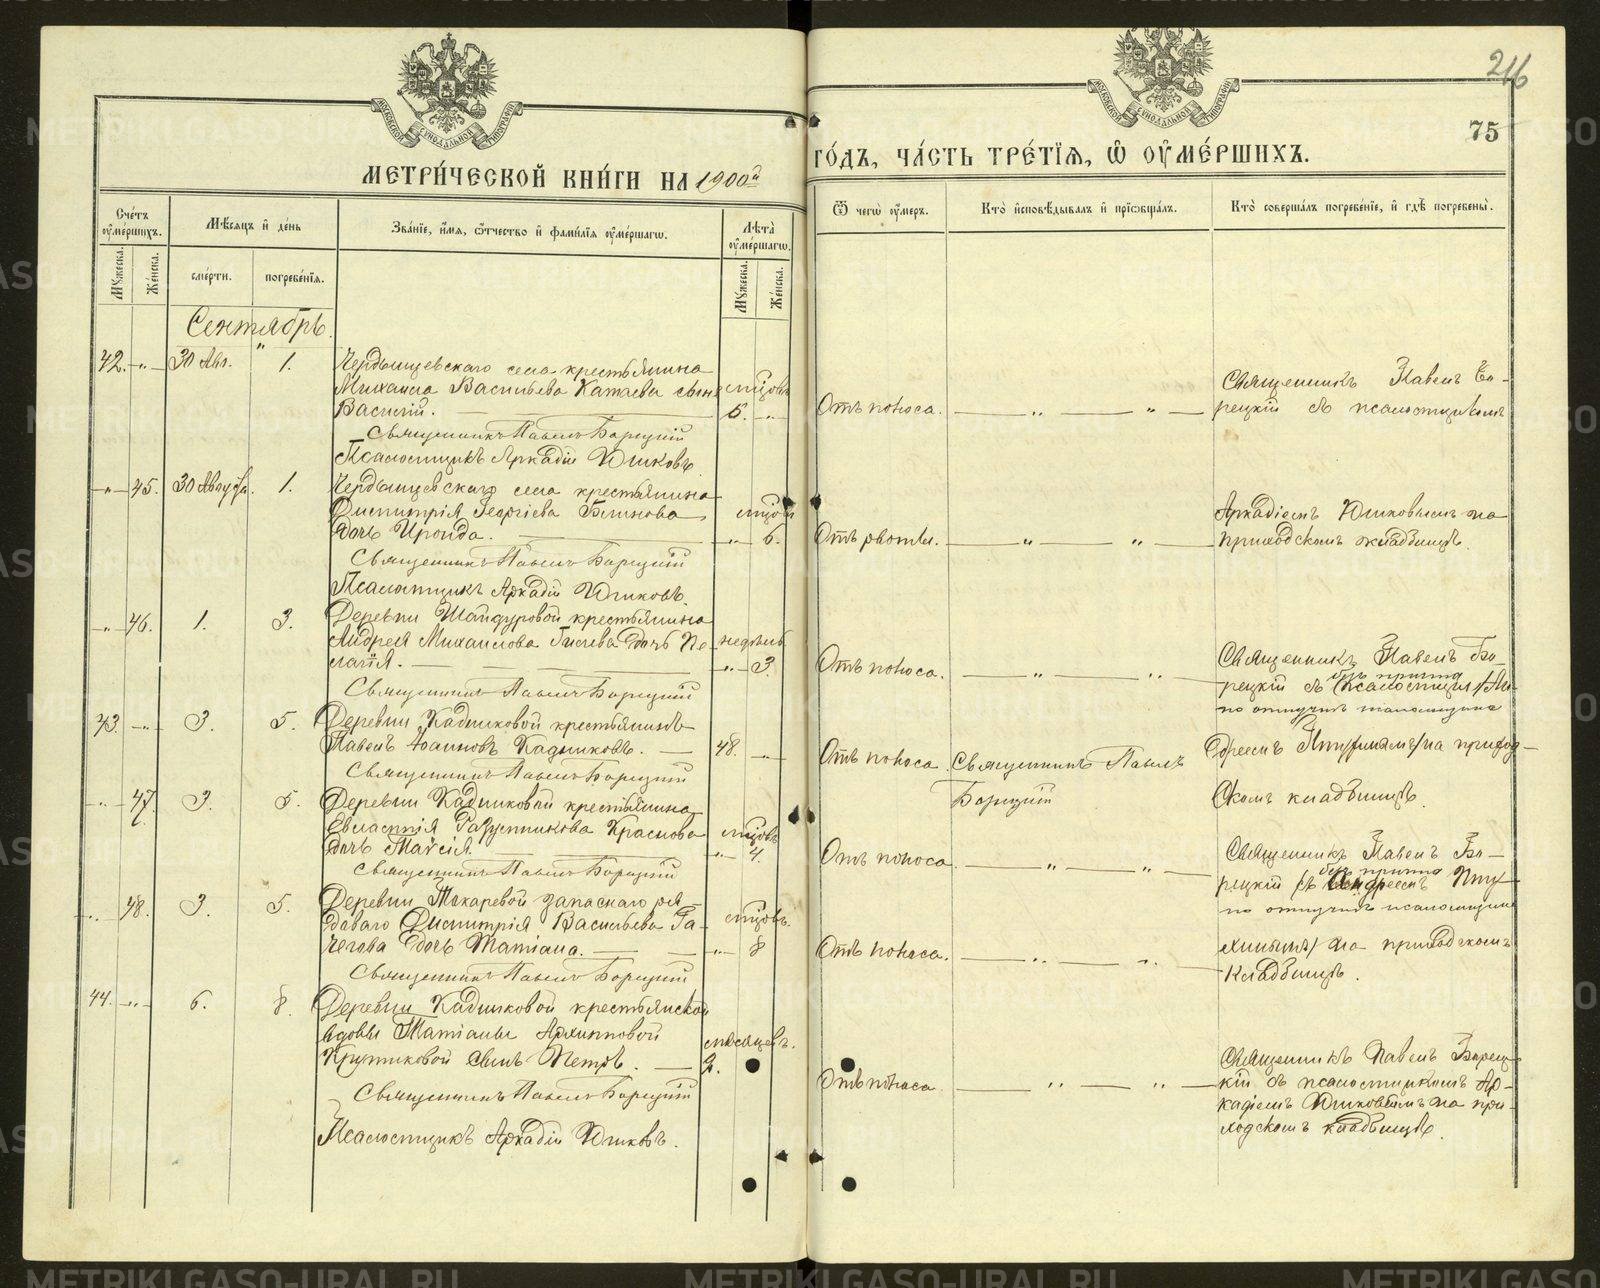 216
75
МОСКОВСКОЙ СѴНОДАЛЬНОЙ ТИПОГРАФІИ
МОСКОВСКОЙ СѴНОДАЛЬНОЙ ТИПОГРАФІИ
МЕТРИ́ЧЕСКОЙ КНИ́ГИ НА 1900й
ГО́ДЪ, ЧА́СТЬ ТРЕ́ТЇѦ, Ѽ ОУ҆МЕ́РШИХЪ.
Сче́тъ оу҆ме́ршихъ.
Мꙋ́жеска.
Же́нска.
Мѣ́сѧцъ и҆ де́нь
сме́рти.
погребе́нїѧ.
Зва́нїе, и҆́мѧ, ѻ҆́тчество и҆ фами́лїѧ оу҆ме́ршагѡ.
Лѣ́та оу҆ме́ршагѡ.
Мꙋ́жеска.
Же́нска.
Ѿ чегѡ̀ оу҆́меръ.
Кто̀ и҆сповѣ́дывалъ и҆ прїѡбща́лъ.
Кто̀ соверша́лъ погребе́нїе, и҆ гдѣ̀ погребены̀.
Сентябрь.
42. -„- 30 Авг. 1. Чердынцевскаго села крестьянина
Михаила Васильева Катаева сынъ мѣсяцовъ
Василій. 6. -„-
Отъ поноса. — „ — „ —
Священникъ Павелъ Бо-
рецкій съ псаломщикомъ
Священникъ Павелъ Борецкій
Псаломщикъ Аркадій Юшковъ.
-„- 45. 30 Августа. 1. Чердынцевскаго села крестьянина
Димитрія Георгіева Блинова
дочь Ираида. -„- 6.
Отъ рвоты. — „ — „ —
Аркадіемъ Юшковымъ на
приходскомъ кладбищѣ.
Священникъ Павелъ Борецкій
Псаломщикъ Аркадій Юшковъ.
-„- 46. 1. 3. Деревни Шайдуровой крестьянина
Андрея Михаилова дочь Пе- недѣль
лагія. -„- 3.
Отъ поноса. — „ — „ —
Священникъ Павелъ Бо-
рецкій безъ причта
по отлучкѣ псаломщика
Священникъ Павелъ Борецкій
43. -„- 3. 5. Деревни Кадниковой крестьянинъ
Павелъ Іоанновъ Кадниковъ. 48. -„-
Отъ поноса. Священникъ Павелъ
Борецкій
на приход-
скомъ кладбищѣ.
Священникъ Павелъ Борецкій
-„- 47. 3. 5. Деревни Кадниковой крестьянина
Краснова мѣсяцовъ
дочь Таисія. -„- 4.
Отъ поноса. — „ — „ —
Священникъ Павелъ Бо-
рецкій безъ причта
по отлучкѣ псаломщика
Священникъ Павелъ Борецкій
-„- 48. 3. 5. Деревни Токаревой запаснаго ря-
доваго Димитрія Васильева Га- мѣсяцовъ.
чегова дочь Татіана. -„- 8
Отъ поноса. — „ — „
на приходскомъ
кладбищѣ.
Священникъ Павелъ Борецкій
44. -„- 6. 8. Деревни Кадниковой крестьянской
вдовы Татіаны Архипповой мѣсяцевъ.
Крутиковой сынъ Петръ. 2.
Отъ поноса. — „ — „ —
Священникъ Павелъ Борец-
кій съ псаломщикомъ Ар-
кадіемъ Юшковымъ на при-
ходскомъ кладбищѣ.
Священникъ Павелъ Борецкій
Псаломщикъ Аркадій Юшковъ.
METRIKI.GASO-URAL.RU